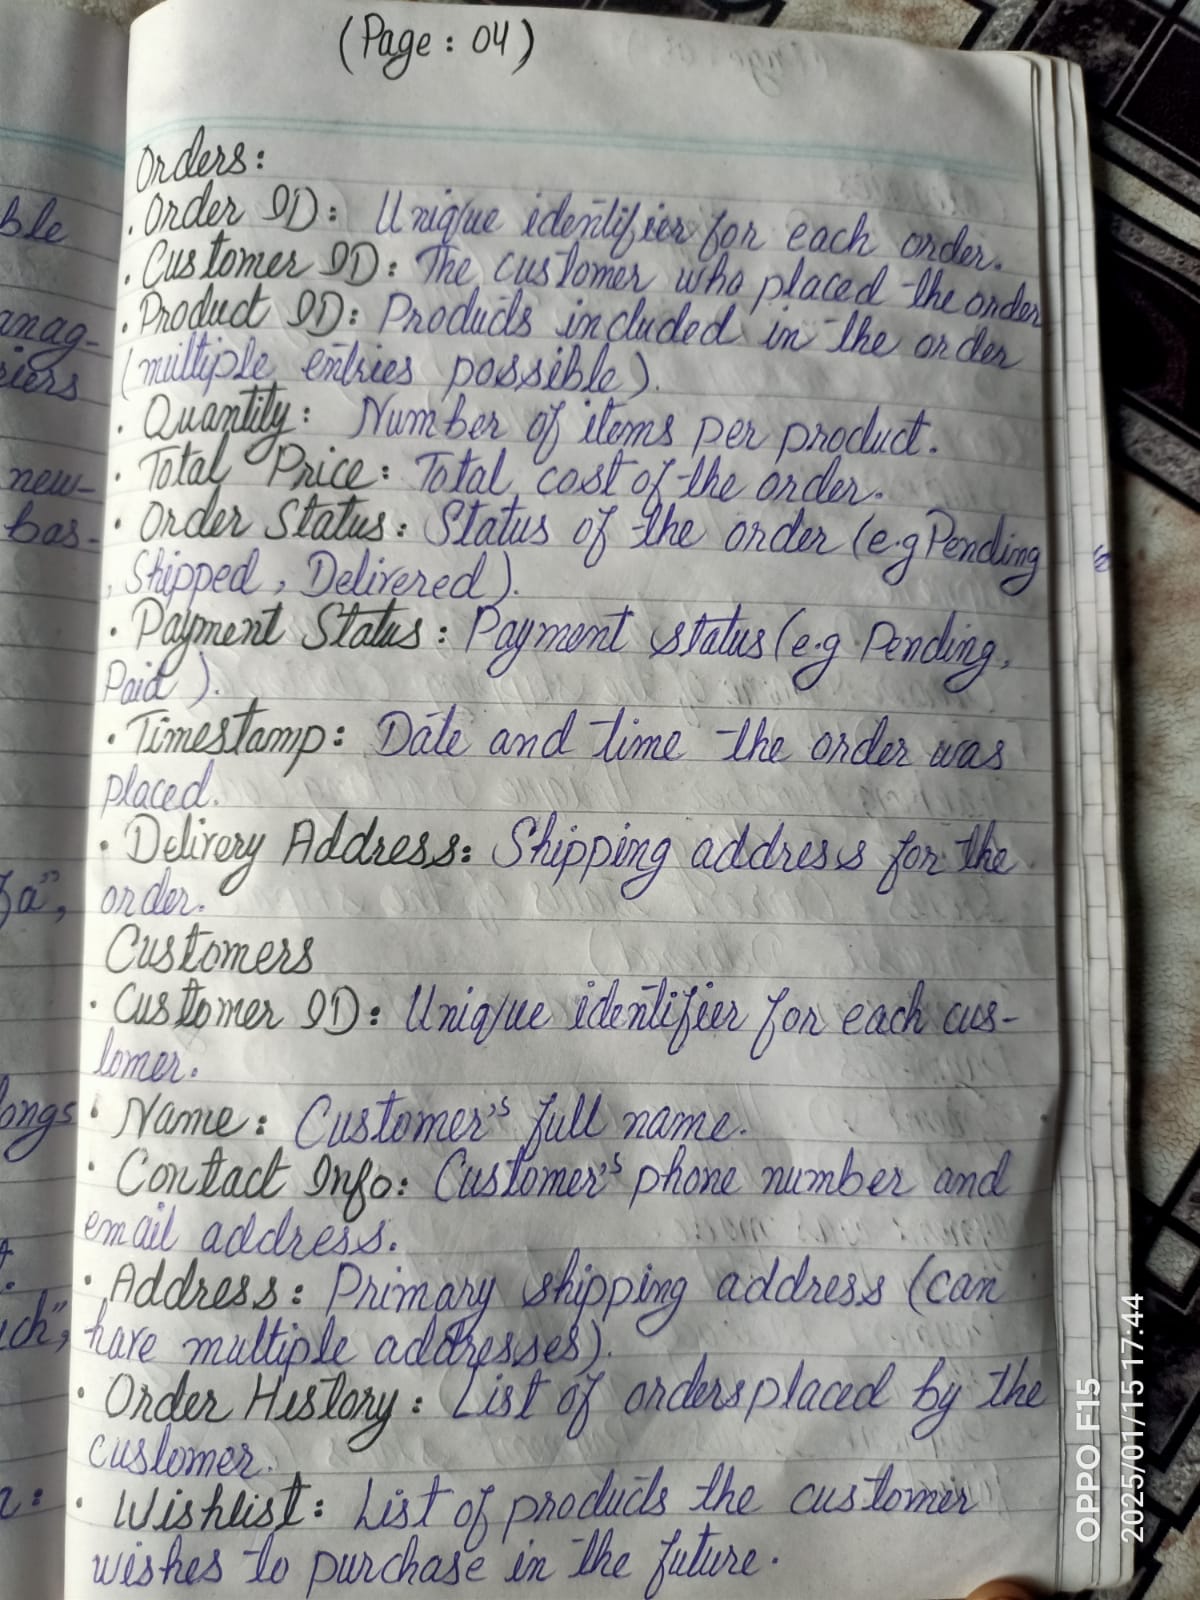 (Page: 04)
Orders:
. Order ID: Unique identifier for each order.
. Customer ID: The customer who placed the order
. Product ID: Products included in the order
(multiple entries possible).
. Quantity: Number of items per product.
. Total Price: Total cost of the order.
. Order Status: Status of the order (e.g Pending
, Shipped, Delivered).
. Payment Status: Payment status (e.g Pending,
Paid).
. Timestamp: Date and time the order was
placed.
. Delivery Address: Shipping address for the
order.
Customers
. Customer ID: Unique identifier for each cus-
tomer.
. Name: Customer's full name.
. Contact Info: Customer's phone number and
email address.
. Address: Primary shipping address (can
have multiple addresses).
. Order History: List of orders placed by the
customer.
. Wishlist: List of products the customer
wishes to purchase in the future.
ble
anag-
riers
new-
bas-
longs
OPPO F15
2025/01/15 17:44